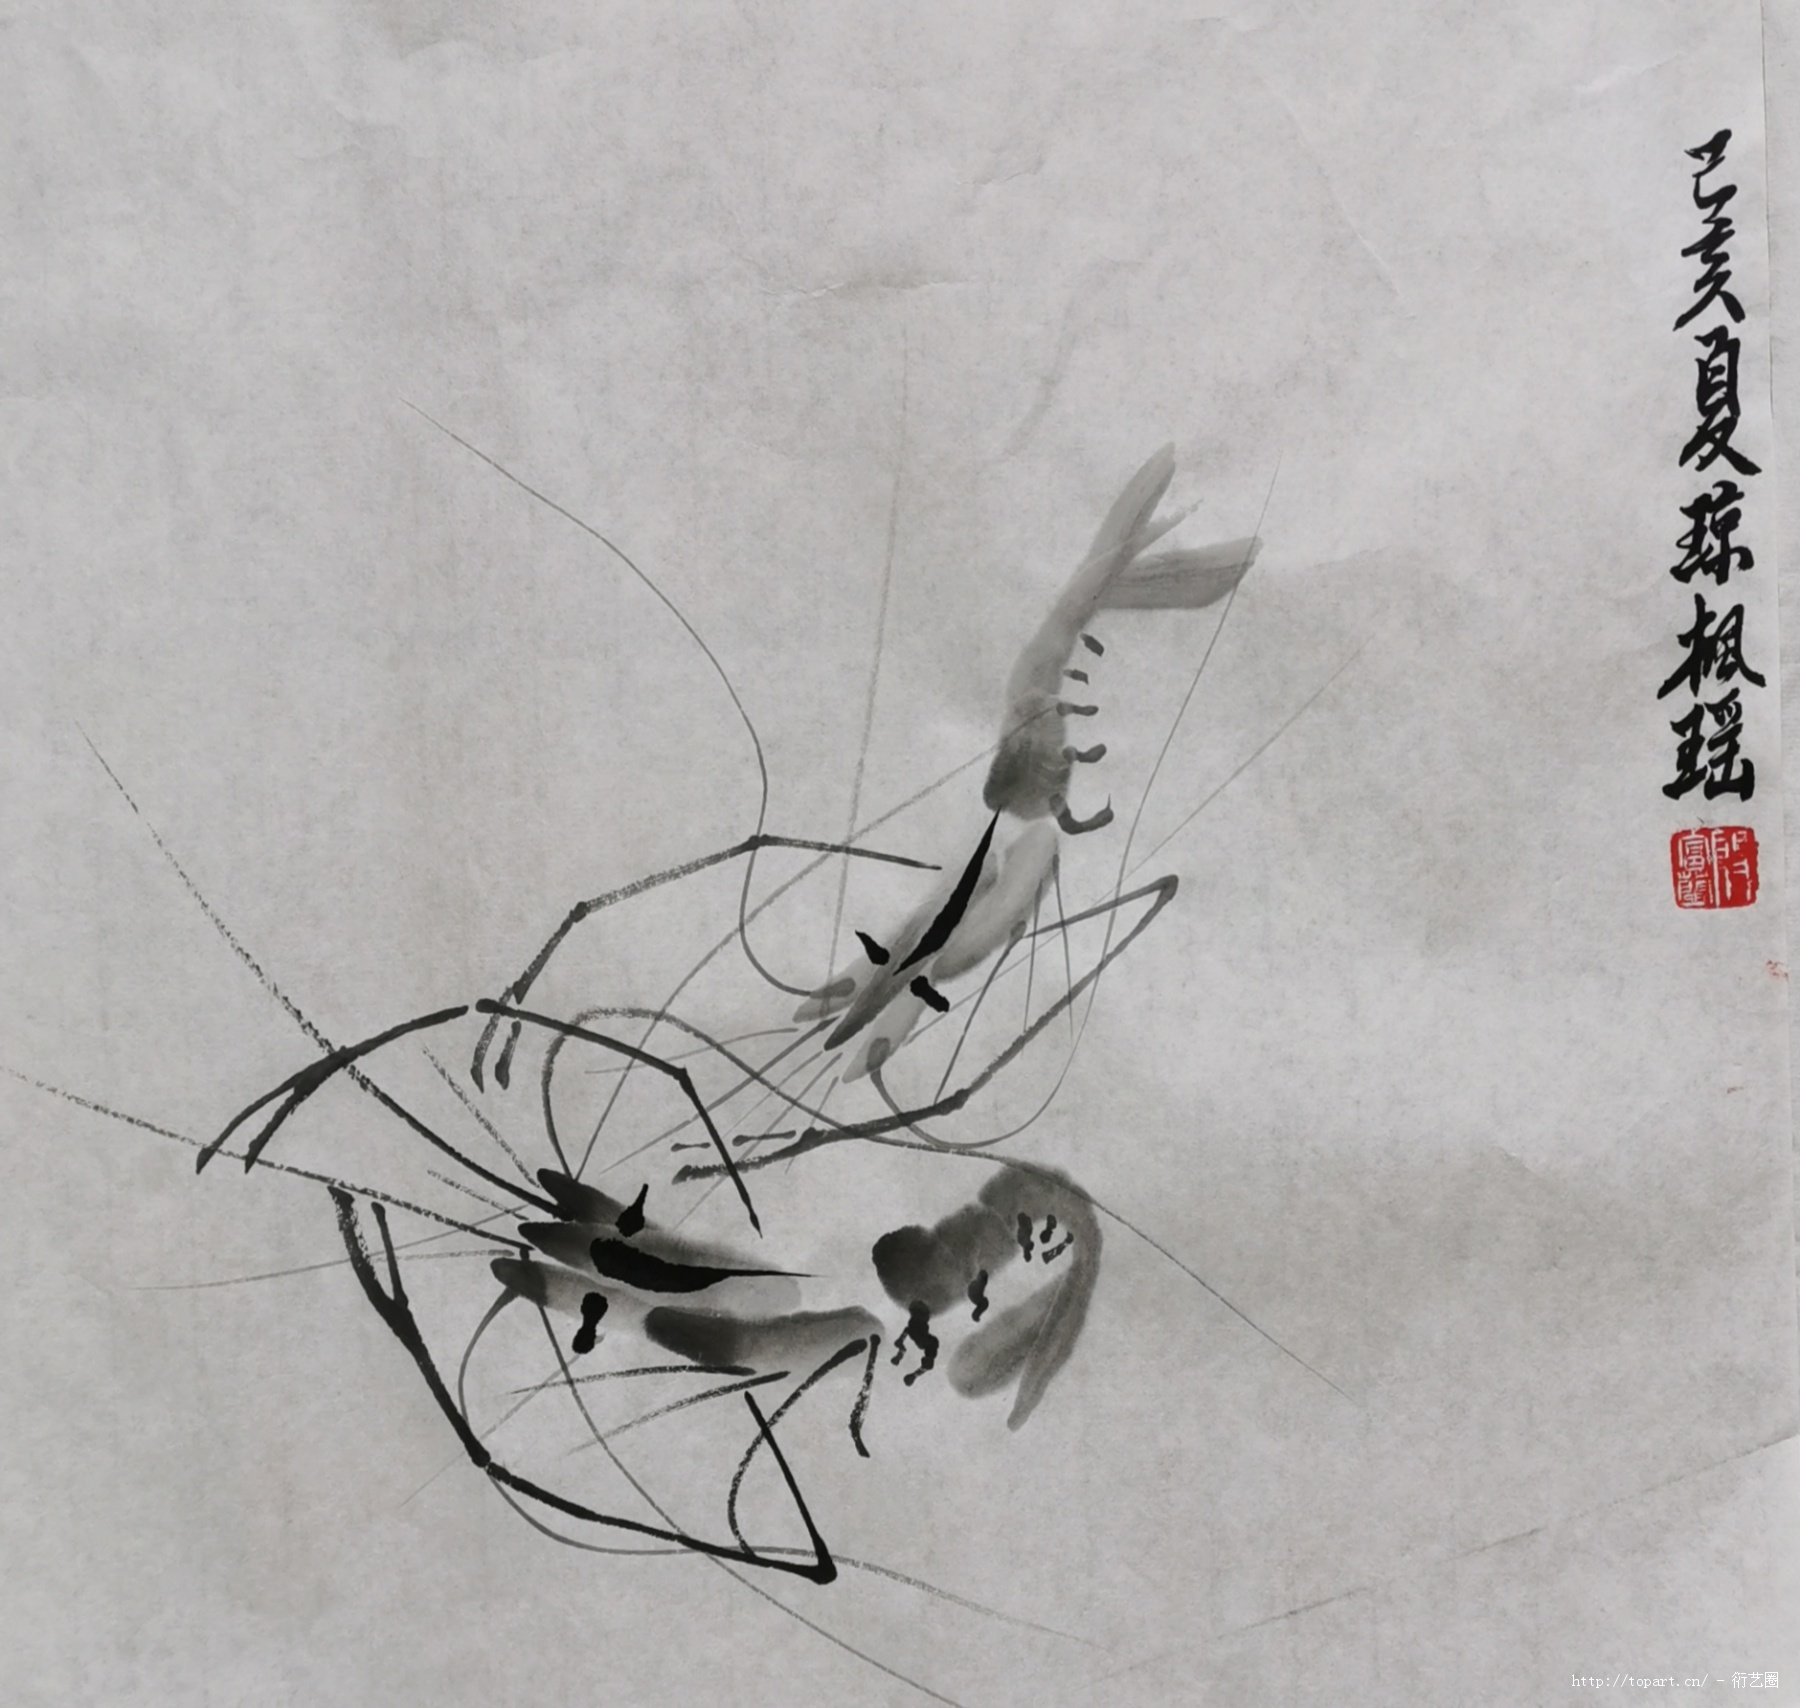 己亥夏琼枫瑶
http://topart.cn/ - 衍艺圈